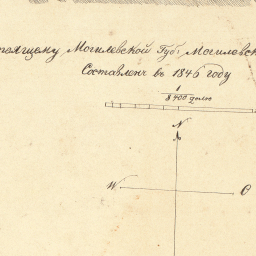 тоящему Могилевской Губ: Могилевск
Составленъ въ 1846 году
1
8400 долю
N
W O